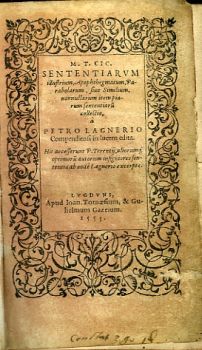 M. T. CIC.
SENTENTIARVM
illustrium, Apophthegmatum, Pa-
rabolarum, siue Similium,
nonnullarum item pia-
rum sententiarũ
collectio,
à
PETRO LAGNERIO
Compendiensi in lucem edita.
Hic accesserunt P. Terentij, aliorumq́;
optimorũ autorum insigniores sen-
tentiæ, ab eodẽ Lagnerio excerptæ.
LVGDVNI,
Apud Ioan. Tornæsium, & Gu-
lielmum Gazeium.
1555.